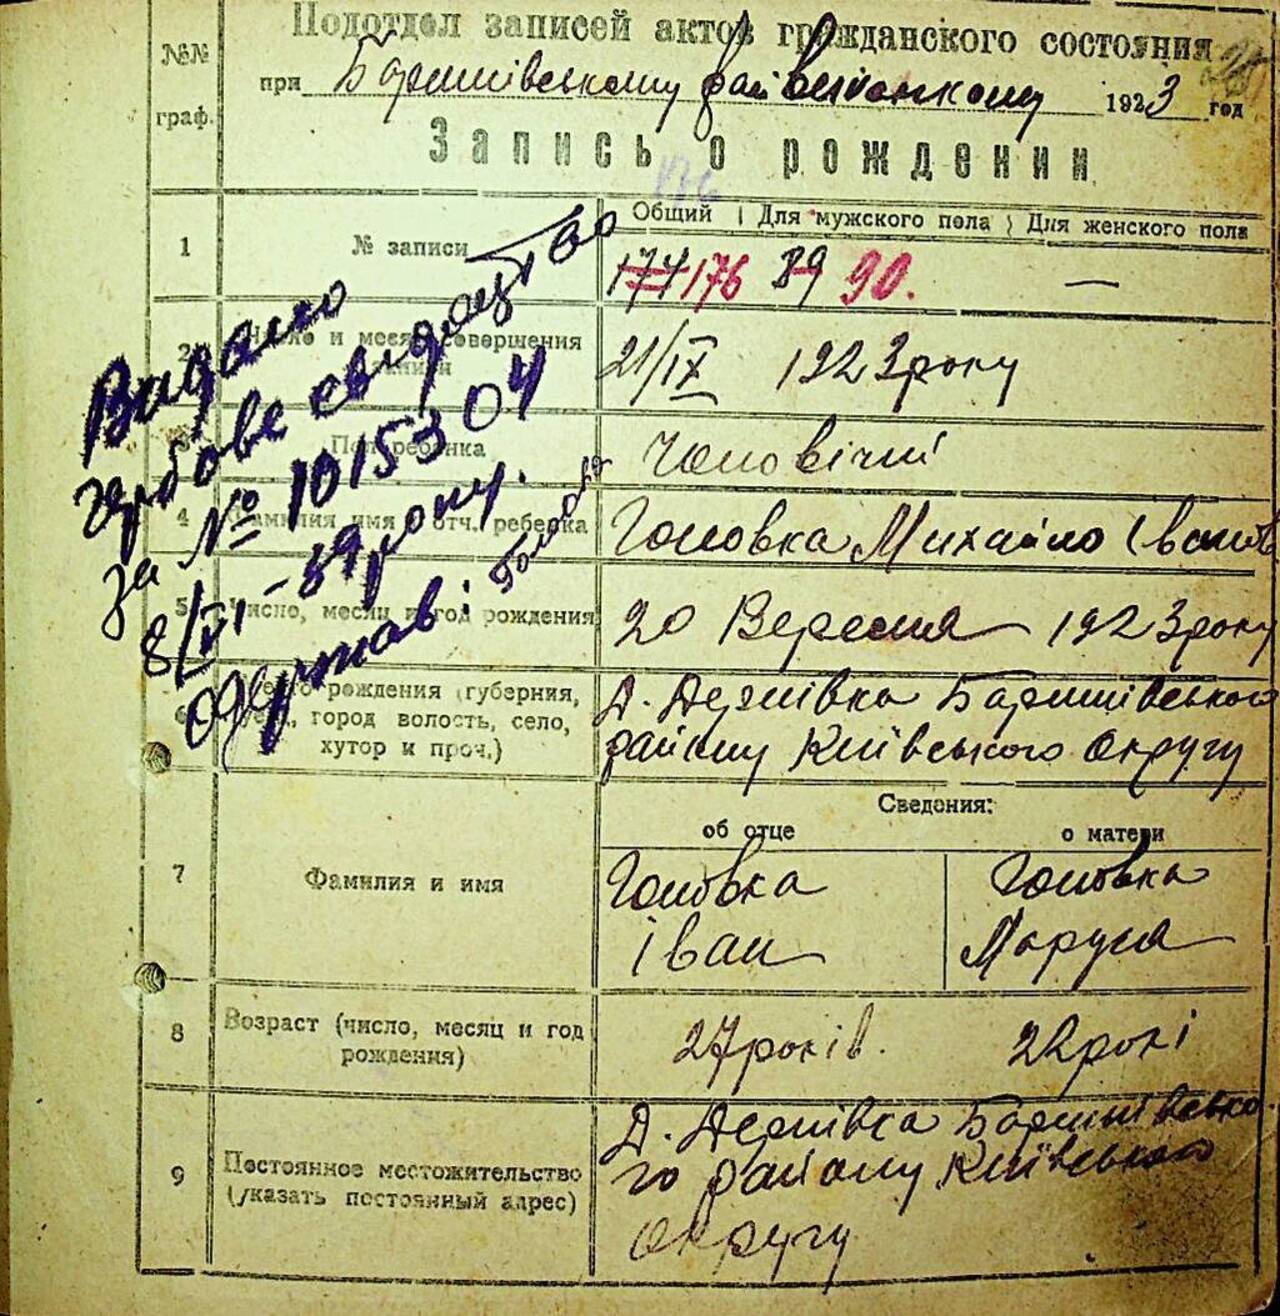 Подотдел записей актов гражданского состояния
№№
граф.
при Баришівському райвиконкому 1923 год
Запись о рождении
176
Общий Для мужского пола Для женского пола
1 № записи 174 176 89 90. —
2 Число и месяц совершения
21/IX 1923 року
3 Пол ребенка Чоловічий
4 Фамилия имя отч. ребенка Головка Михайло Іванов
5 Число, месяц и год рождения 20 Вересня 1923 року
6 Место рождения (губерния,
город волость, село,
хутор и проч.)
Д. Дернівка Баришівського
району Київського Округу
Сведения:
об отце о матери
7 Фамилия и имя
Головка Головка
Іван Маруся
8 Возраст (число, месяц и год
рождения)
27 років. 22 рокі
9 Постоянное местожительство
(указать постоянный адрес)
Д. Дернівка Баришівсько
го району Київського
округу
Видано
гербове свидоцтво
за № 1015304
8/VI - 39 року.
одержав: Головка